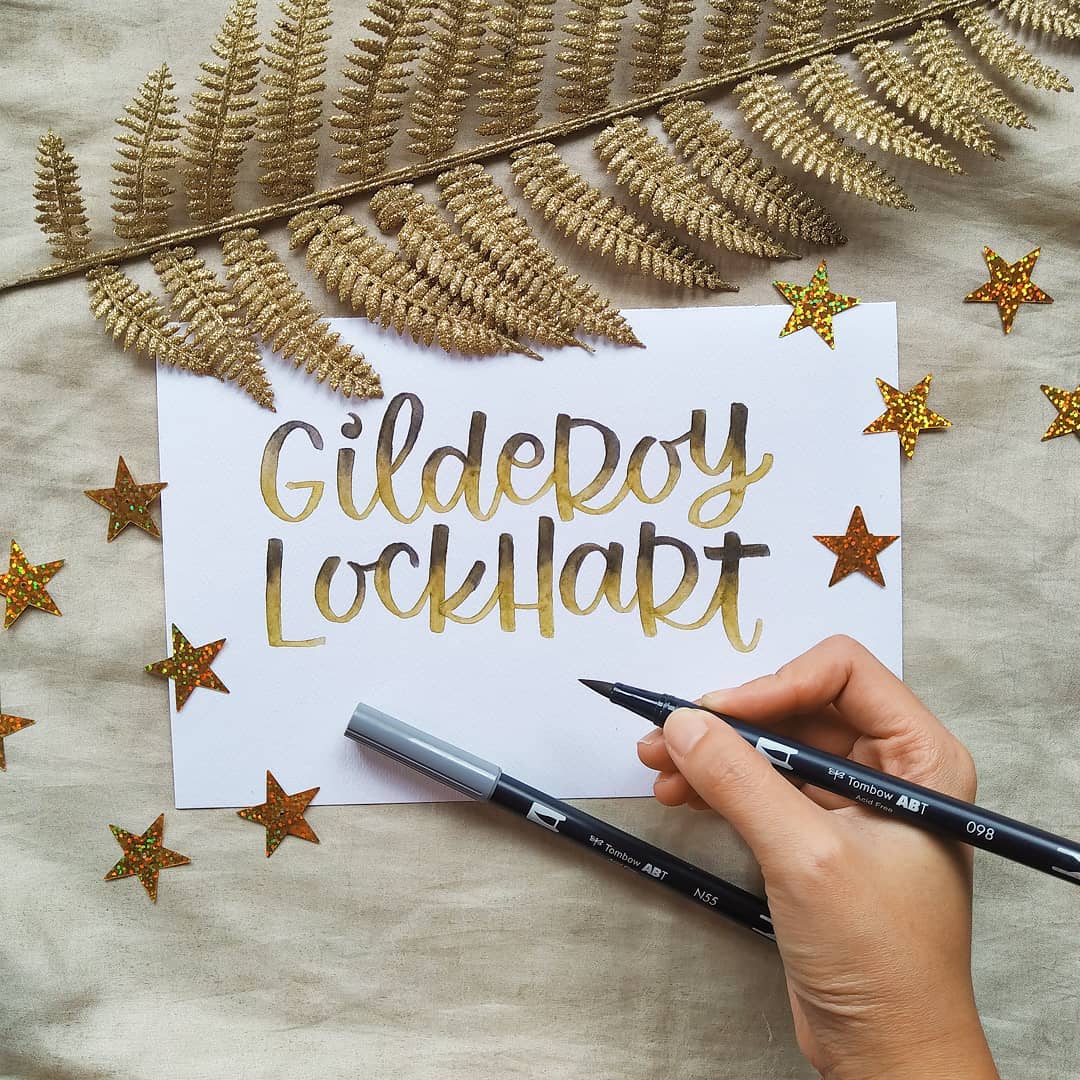 GildeRoy
LockHaRt
Tombow ABT
Acid Free
098
Tombow ABT
N55